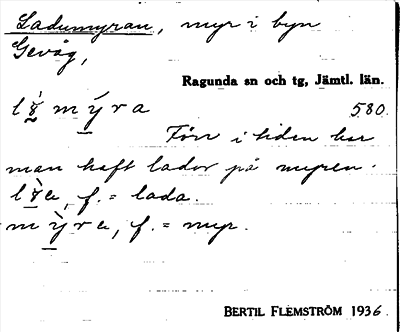 Ladumyran, myr i byn
Gevåg,
Ragunda sn och tg, Jämtl. län.
l ỳ̱ m ý̱ r a 580.
Förr i tiden har
man haft lador på myren.
f. = lada.
f. = myr.
BERTIL FLEMSTRÖM 1936.